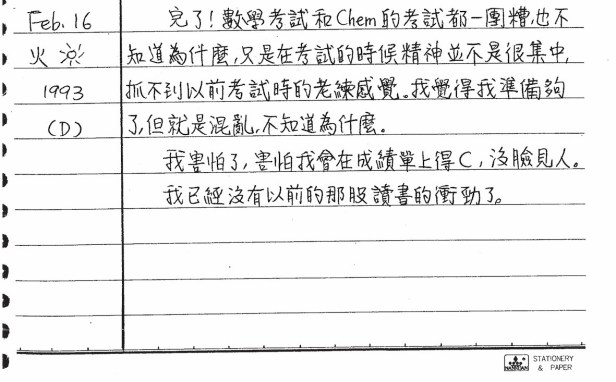 Feb. 16
火
1993
(D)
完了！數學考試和Chem的考試都一團糟,也不
知道為什麼,只是在考試的時候精神並不是很集中,
抓不到以前考試時的老練感覺。我覺得我準備夠
了,但就是混亂,不知道為什麼。
我害怕了,害怕我會在成績單上得C,沒臉見人。
我已經沒有以前的那股讀書的衝勁了。
STATIONERY
& PAPER